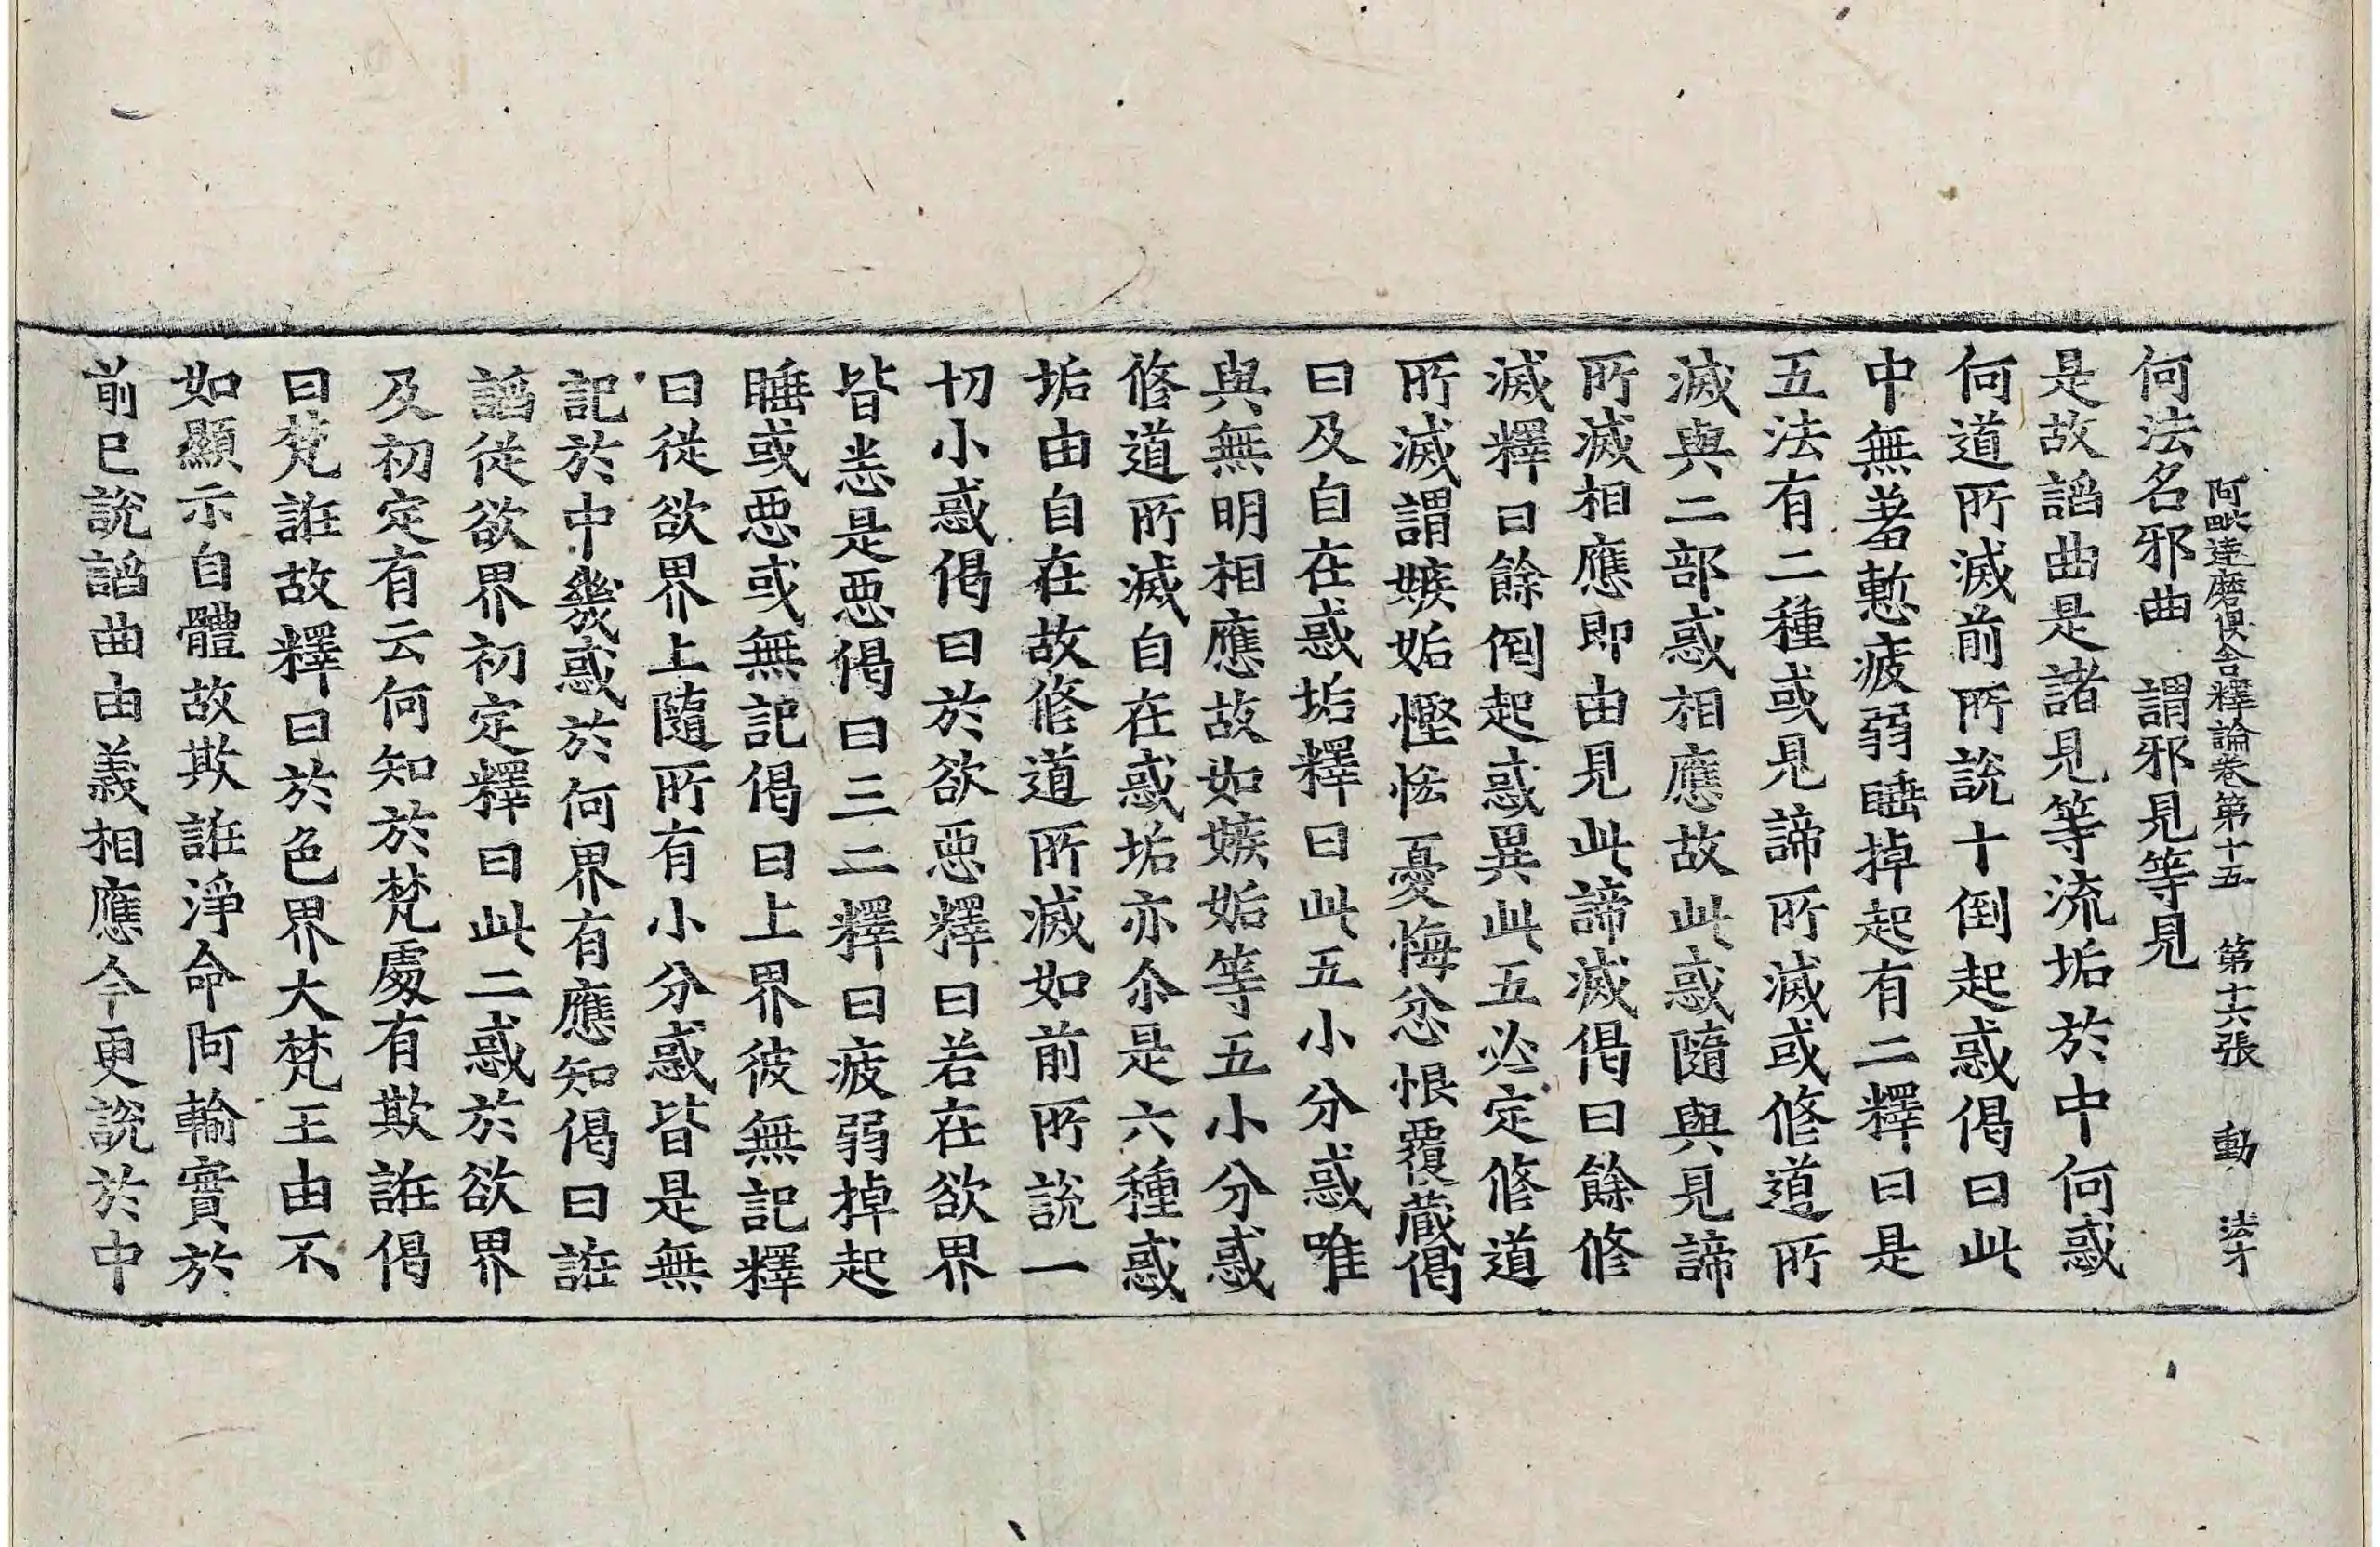 阿毗達磨俱舍釋論卷第十五 第十六張 動 法才
何法名邪曲 謂邪見等見
是故謟曲是諸見等流垢於中何惑
何道所滅前所說十倒起惑偈曰此
中無羞慙疲弱睡掉起有二釋曰是
五法有二種或見諦所滅或修道所
滅與二部惑相應故此惑隨與見諦
所滅相應即由見此諦滅偈曰餘修
滅釋曰餘倒起惑異此五必定修道
所滅謂嫉妬慳悋憂悔忿恨覆藏偈
曰及自在惑垢釋曰此五小分惑唯
與無明相應故如嫉妬等五小分惑
修道所滅自在惑垢亦尒是六種惑
垢由自在故修道所滅如前所說一
切小惑偈曰於欲惡釋曰若在欲界
皆悉是惡偈曰三二釋曰疲弱掉起
睡或惡或無記偈曰上界彼無記釋
曰從欲界上隨所有小分惑皆是無
記於中幾惑於何界有應知偈曰誑
謟從欲界初定釋曰此二惑於欲界
及初定有云何知於梵處有欺誑偈
曰梵誑故釋曰於色界大梵王由不
如顯示自體故欺誑淨命阿輸實於
前已說謟曲由義相應今更說於中